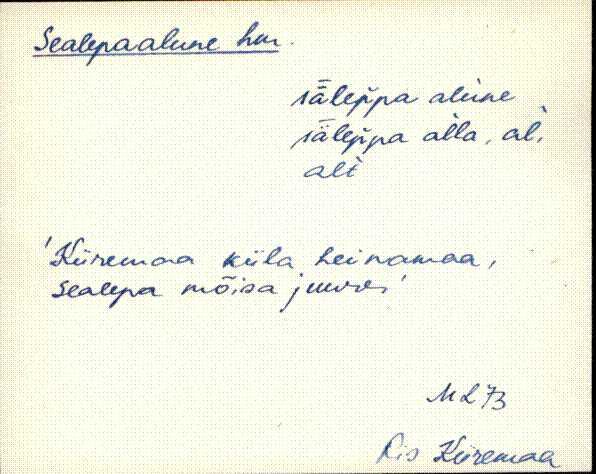 Sealepaalune hm.
sāleppa alune
sāleppa alla, al,
alt
'Kiiremaa küla heinamaa,
Sealepa mõisa juures'
ML 73
Ris Kiiremaa